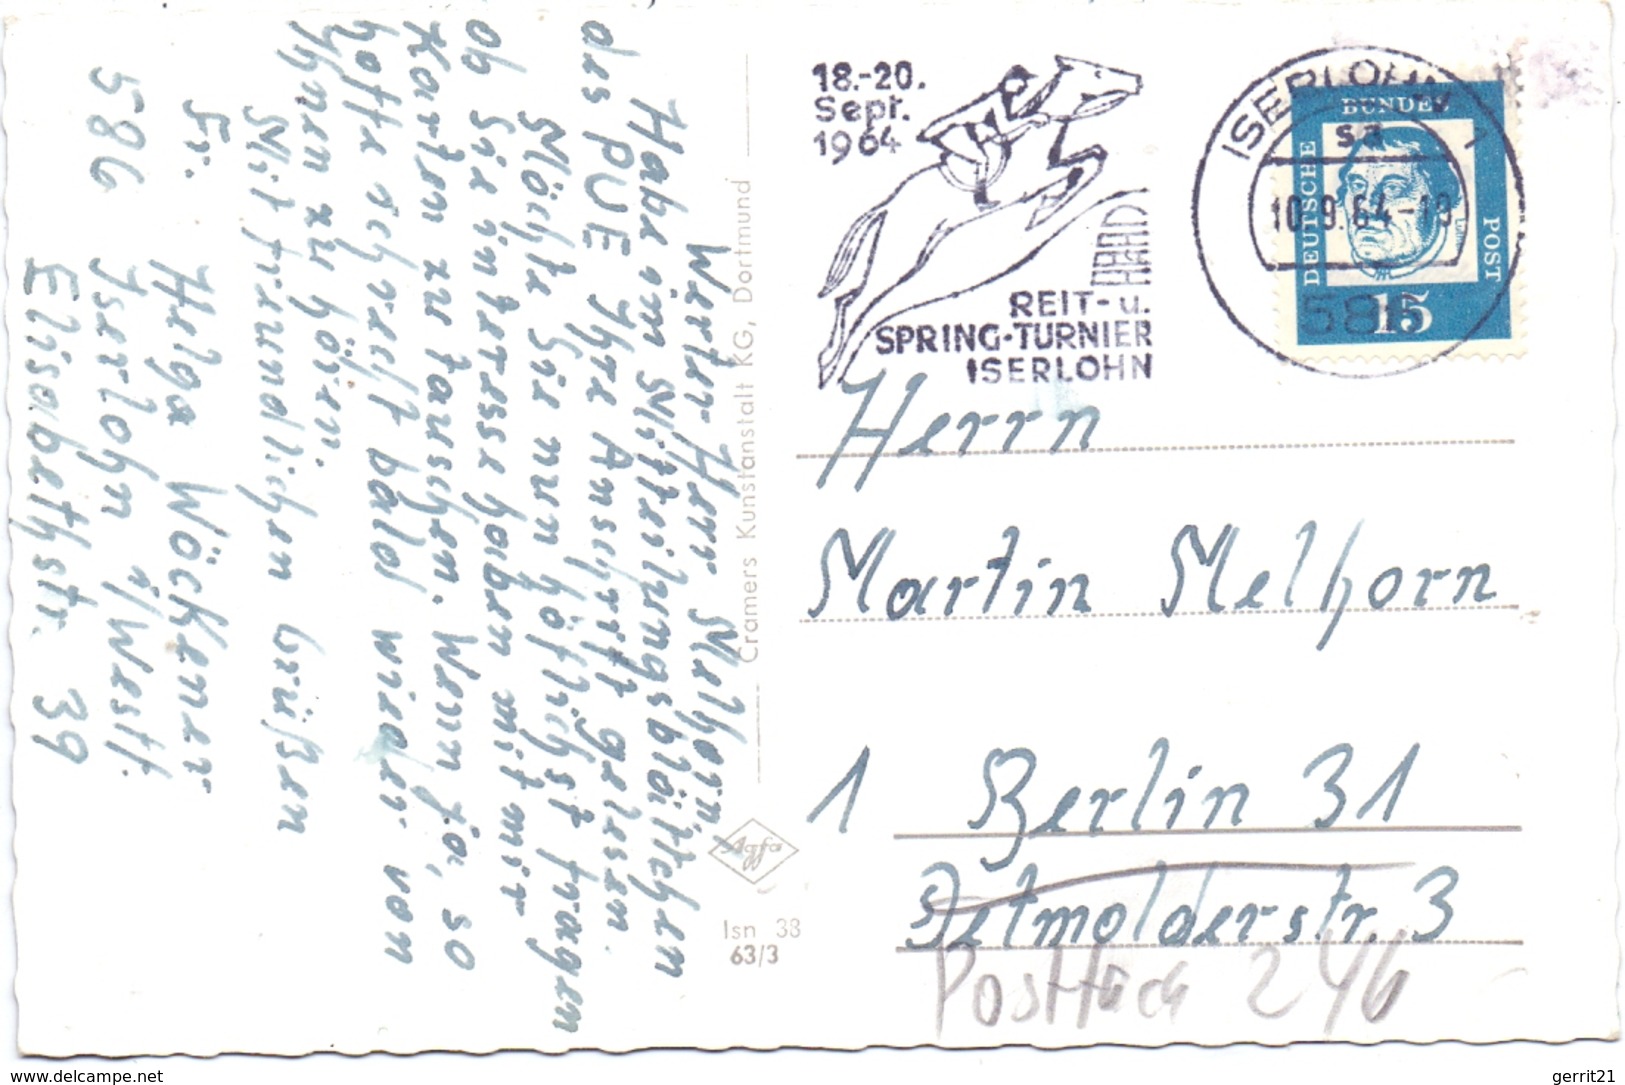 Werter Herr Melhorn!
Habe im Mitteilungsblättchen
des PVE Ihre Anschrift gelesen.
Möchte Sie nun höflichst fragen
ob Sie interesse haben mit mir
Karten zu tauschen. Wenn ja, so
hoffe ich recht bald wieder von
Ihnen zu hören.
Mit freundlichen Grüßen
Fr. Helga Wöckener
586 Iserlohn i/Westf.
Elisabethstr. 39
Cramers Kunstanstalt KG, Dortmund
Agfa
Isn 38
63/3
18.-20.
Sept.
1964
REIT- u.
SPRING-TURNIER
ISERLOHN
ISERLOHN 1
sa
10.9.64-19
586
DEUTSCHE
BUNDES
POST
15
Herrn
Martin Melhorn
1 Berlin 31
Detmolderstr. 3
Postfach 246
www.delcampe.net
gerrit21